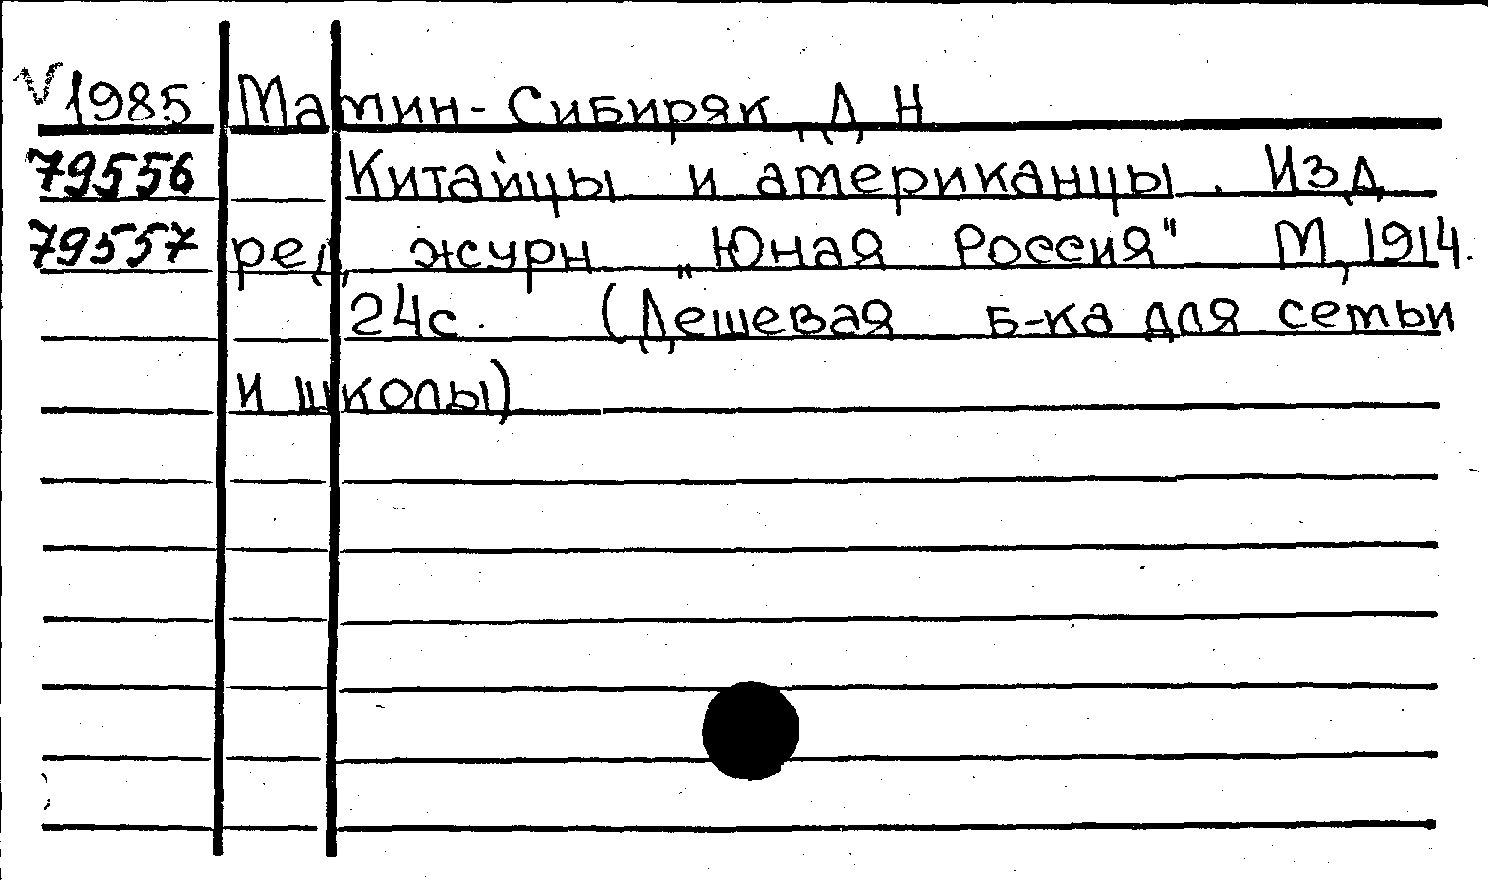 V 1985 Мамин-Сибиряк, Д Н
79556 Китайцы и американцы. Изд
79557 ред, журн „Юная Россия" М, 1914.
24с. (Дешевая б-ка для сетьи
и школы)